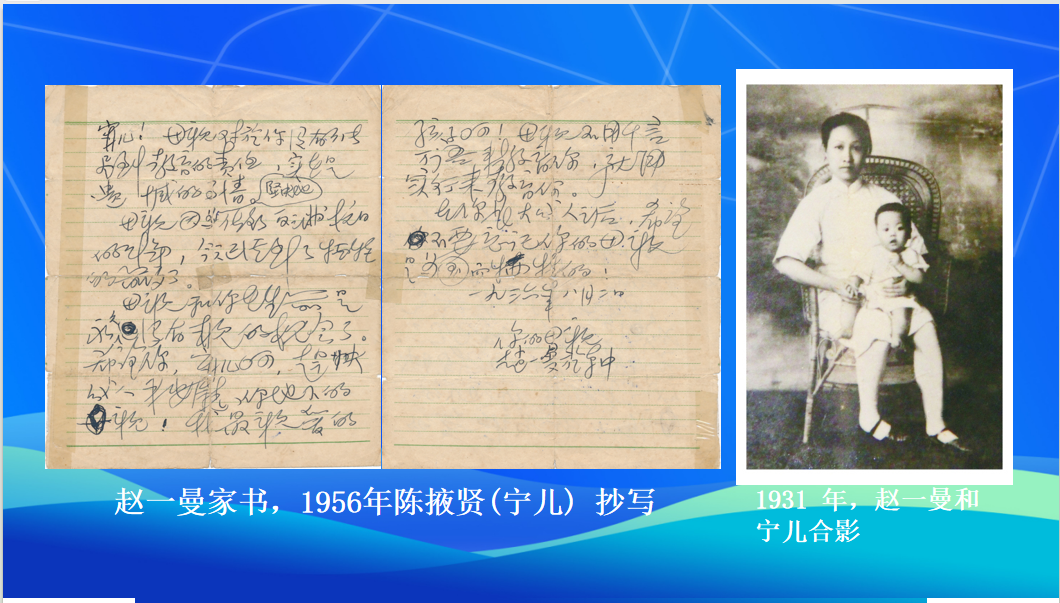 宁儿！母亲对於你没有能尽
到教育的责任，实在是
遗憾的事情。
坚决地
母亲因 做了反满抗日
的斗争，今天已经到了牺牲
的前夕了。
母亲和你在生前是
没有 的机会了。
希望你，宁儿啊！赶快
成人，来安慰你地下的
母亲！我最亲爱的
孩子啊！母亲不用千言
万语来教育你，就用
实行来教育你。
在你长大成人之后，希望
不要忘记你的母亲
是为国而牺牲的！
一九三六年八月二日
你的母亲
赵一曼于车中
赵一曼家书，1956年陈掖贤(宁儿) 抄写
1931 年，赵一曼和
宁儿合影